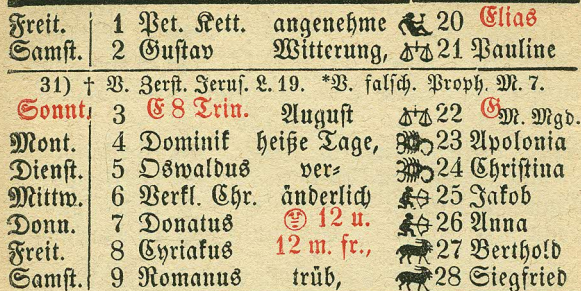 Freit. 1 Pet. Kett. angenehme 20 Elias
Samst. 2 Gustav Witterung, 21 Pauline
31) † V. Zerst. Jerus. L. 19. *V. falsch. Proph. M. 7.
Sonnt. 3 E 8 Trin. August 22 G M. Mgd.
Mont. 4 Dominik heiße Tage, 23 Apolonia
Dienst. 5 Oswaldus ver- 24 Christina
Mittw. 6 Verkl. Chr. änderlich 25 Jakob
Donn. 7 Donatus 12 u. 26 Anna
Freit. 8 Cyriakus 12 m. fr., 27 Berthold
Samst. 9 Romanus trüb, 28 Siegfried